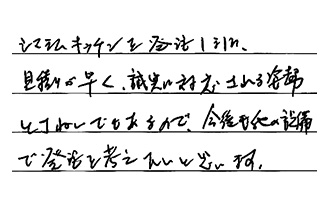 システムキッチンを発注しましたが、
見積りが早く、誠実に対応される姿勢
とてもよいでもあるので、今後も他の設備
で発注を考えたいと思います。